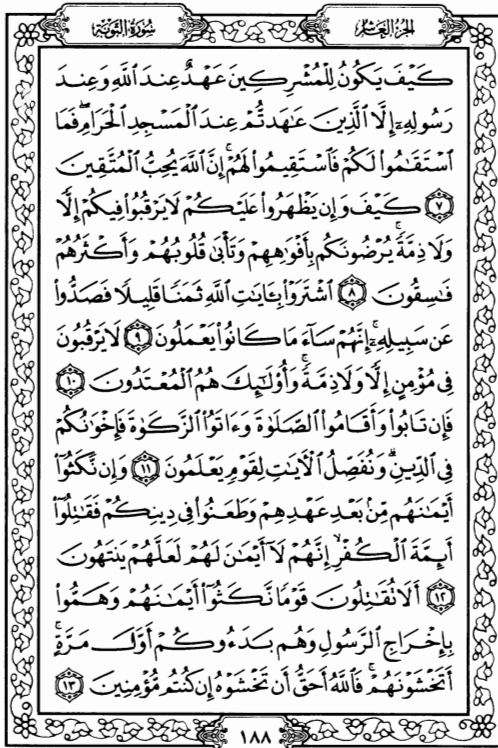 الجزء العاشر
سورة التوبة
كَيْفَ يَكُونُ لِلْمُشْرِكِينَ عَهْدٌ عِندَ ٱللَّهِ وَعِندَ
رَسُولِهِۦٓ إِلَّا ٱلَّذِينَ عَٰهَدتُّمْ عِندَ ٱلْمَسْجِدِ ٱلْحَرَامِۖ فَمَا
ٱسْتَقَٰمُوا۟ لَكُمْ فَٱسْتَقِيمُوا۟ لَهُمْۚ إِنَّ ٱللَّهَ يُحِبُّ ٱلْمُتَّقِينَ
٧ كَيْفَ وَإِن يَظْهَرُوا۟ عَلَيْكُمْ لَا يَرْقُبُوا۟ فِيكُمْ إِلًّا
وَلَا ذِمَّةًۚ يُرْضُونَكُم بِأَفْوَٰهِهِمْ وَتَأْبَىٰ قُلُوبُهُمْ وَأَكْثَرُهُمْ
فَٰسِقُونَ ٨ ٱشْتَرَوْا۟ بِـَٔايَٰتِ ٱللَّهِ ثَمَنًا قَلِيلًا فَصَدُّوا۟
عَن سَبِيلِهِۦٓۚ إِنَّهُمْ سَآءَ مَا كَانُوا۟ يَعْمَلُونَ ٩ لَا يَرْقُبُونَ
فِى مُؤْمِنٍ إِلًّا وَلَا ذِمَّةًۚ وَأُو۟لَٰٓئِكَ هُمُ ٱلْمُعْتَدُونَ ١٠
فَإِن تَابُوا۟ وَأَقَامُوا۟ ٱلصَّلَوٰةَ وَءَاتَوُا۟ ٱلزَّكَوٰةَ فَإِخْوَٰنُكُمْ
فِى ٱلدِّينِۗ وَنُفَصِّلُ ٱلْـَٔايَٰتِ لِقَوْمٍ يَعْلَمُونَ ١١ وَإِن نَّكَثُوٓا۟
أَيْمَٰنَهُم مِّنۢ بَعْدِ عَهْدِهِمْ وَطَعَنُوا۟ فِى دِينِكُمْ فَقَٰتِلُوٓا۟
أَئِمَّةَ ٱلْكُفْرِۙ إِنَّهُمْ لَآ أَيْمَٰنَ لَهُمْ لَعَلَّهُمْ يَنتَهُونَ
١٢ أَلَا تُقَٰتِلُونَ قَوْمًا نَّكَثُوٓا۟ أَيْمَٰنَهُمْ وَهَمُّوا۟
بِإِخْرَاجِ ٱلرَّسُولِ وَهُم بَدَءُوكُمْ أَوَّلَ مَرَّةٍۚ
أَتَخْشَوْنَهُمْۚ فَٱللَّهُ أَحَقُّ أَن تَخْشَوْهُ إِن كُنتُم مُّؤْمِنِينَ ١٣
١٨٨